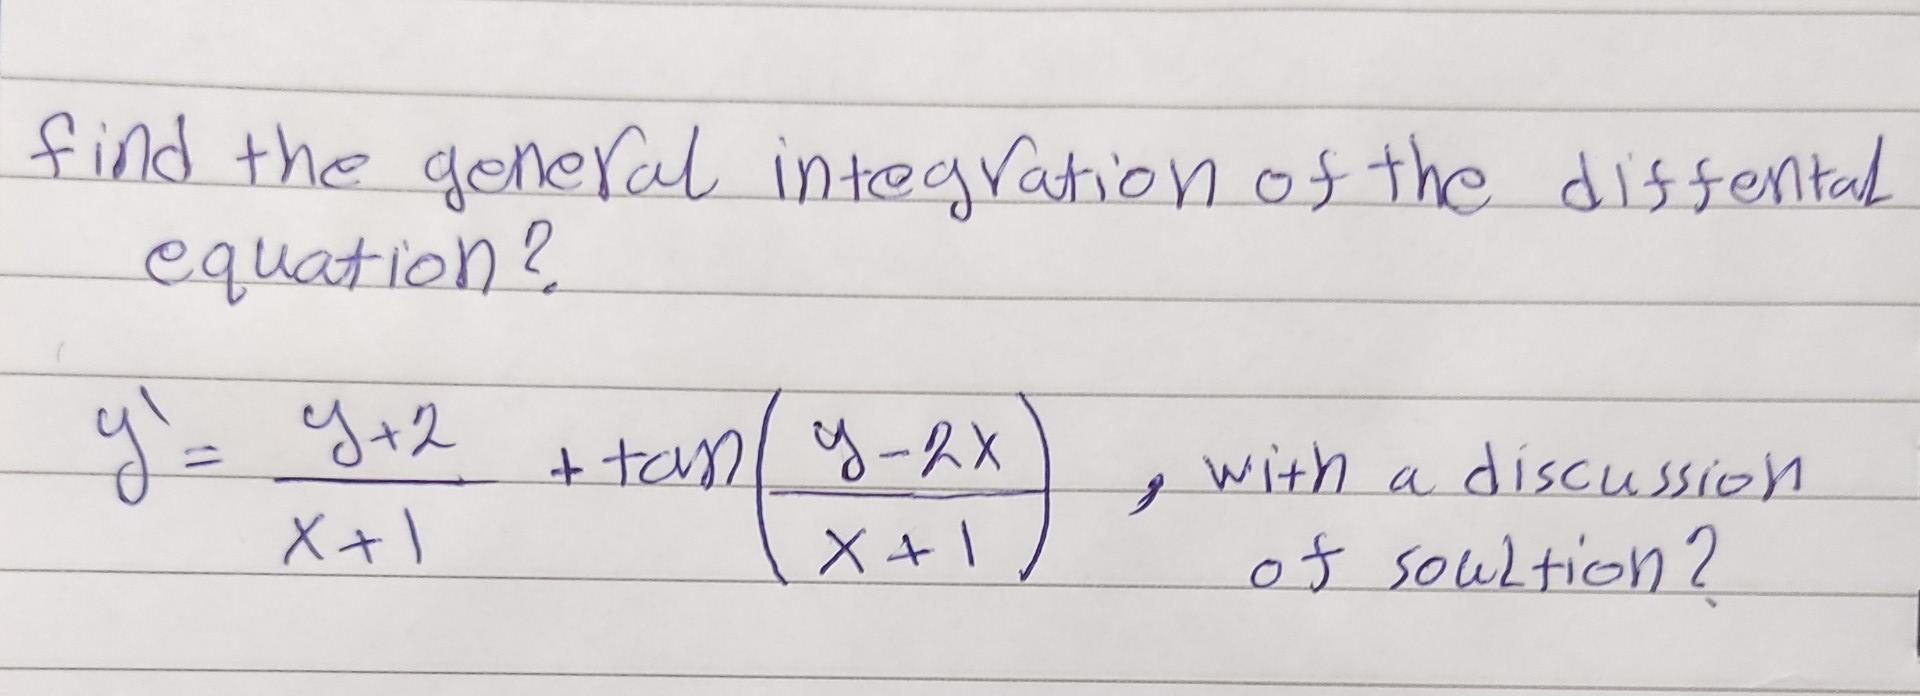 find the general integration of the diffental
equation?
y` = y+2/x+1 + tan(y-2x/x+1), with a discussion
of soultion?